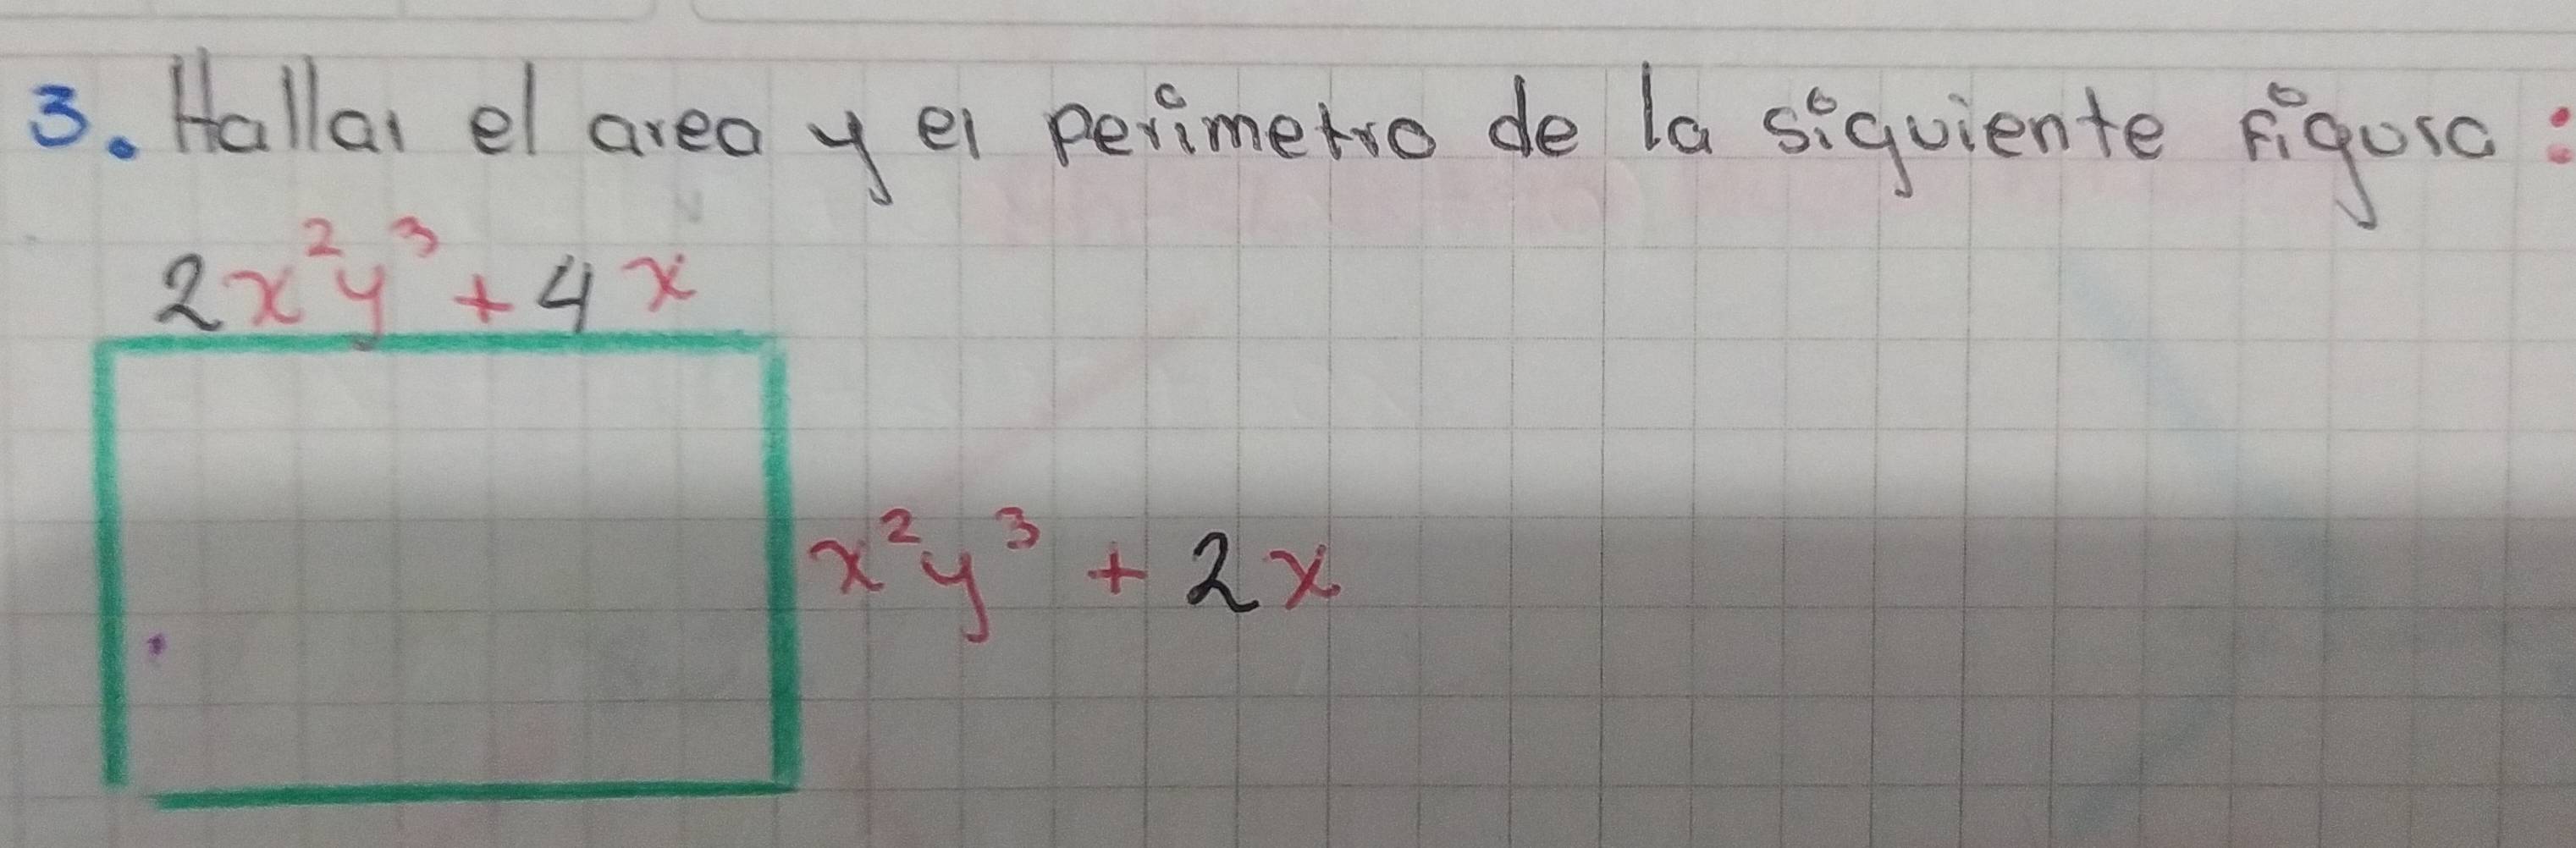 3. Hallar el area y el perimetro de la siguiente figura:
2x²y³ + 4x
x²y³ + 2x